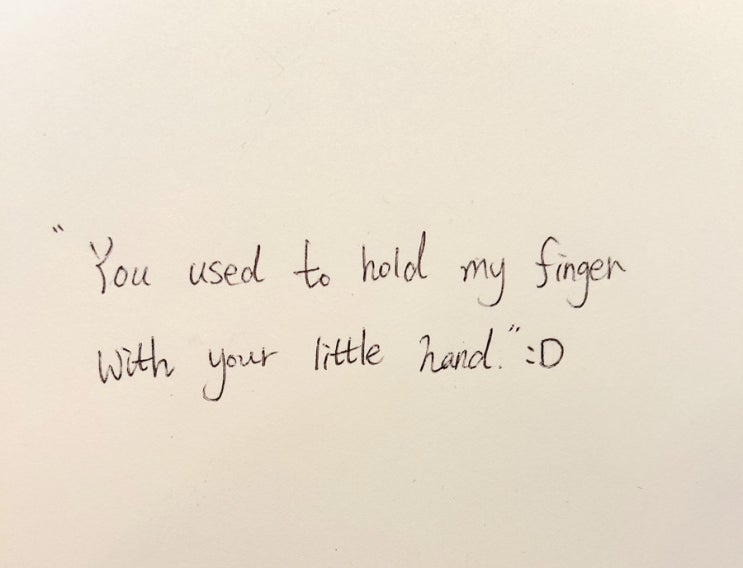 "You used to hold my finger
with your little hand." :D